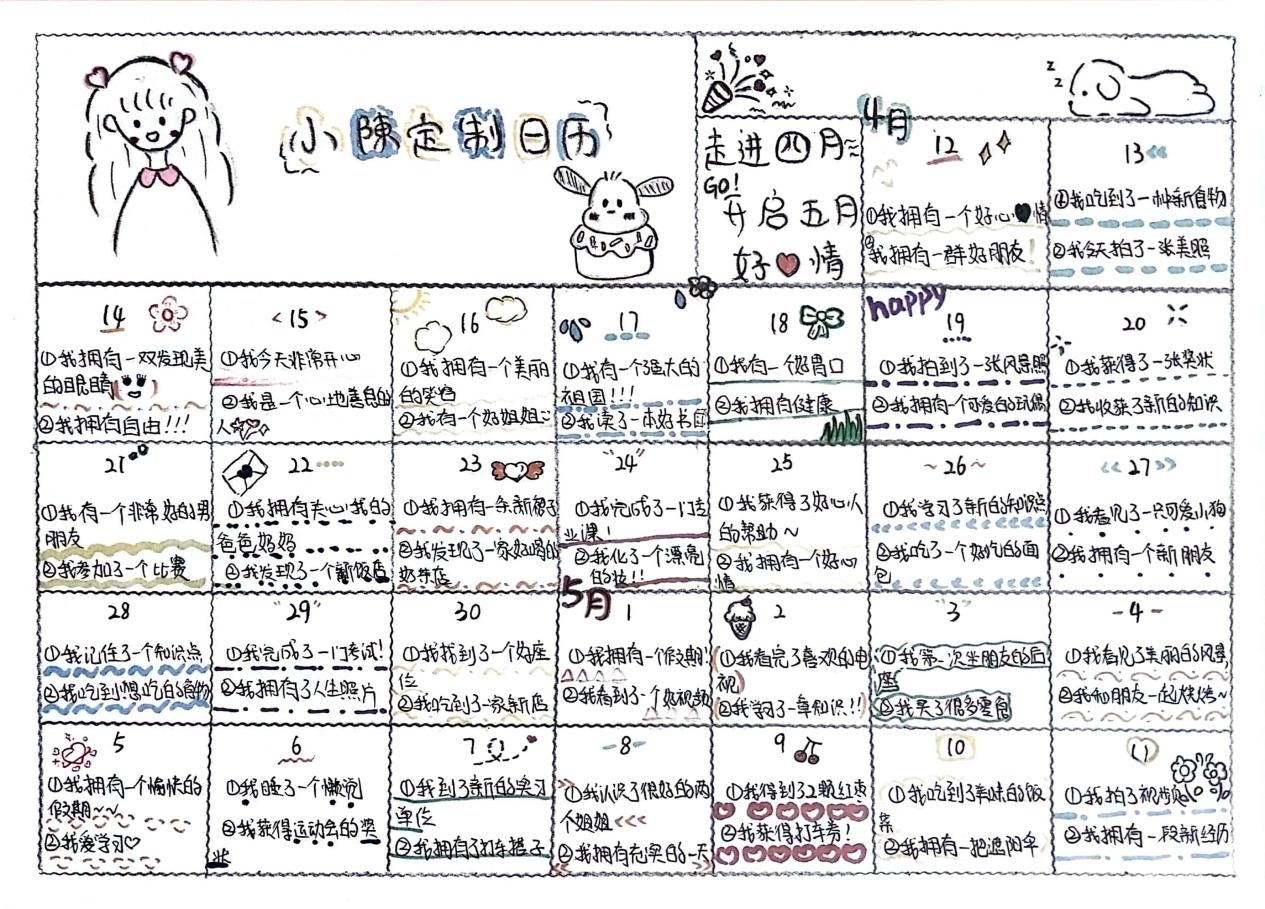 小陳定制日历
走进四月
GO!
开启五月
好情
4月
12
①我拥有一个好心情
②我拥有一群好朋友!
13
①我吃到了一种新食物
②我今天拍了一张美照
14
①我拥有一双发现美
的眼睛
②我拥有自由!!!
<15>
①我今天非常开心
②我是一个心地善良的
人
16
①我拥有一个美丽
的笑容
②我有一个好姐姐
17
①我有一个强大的
祖国!!!
②我读了一本好书
18
①我有一个好胃口
②我拥有健康
happy
19
①我拍到了一张风景照
②我拥有一个可爱的玩偶
20
①我获得了一张奖状
②我收获了新的知识
21
①我有一个非常好的男
朋友
②我参加了一个比赛
22
①我拥有关心我的
爸爸妈妈
②我发现了一个新饭店
23
①我拥有一条新裙子
②我发现了一家好喝的
奶茶店
"24"
①我完成了一门结
业课!
②我化了一个漂亮
的妆!!
25
①我获得了好心人
的帮助~
②我拥有一个好心
情
~26~
①我学习了新的知识点
②我吃了一个好吃的面
包
<<27>>
①我看见了一只可爱小狗
②我拥有一个新朋友
28
①我记住了一个知识点
②我吃到想吃的食物
"29"
①我完成了一门考试!
②我拥有了人生照片
30
①我找到了一个好座
位
②我吃到一家新店
5月
1
①我拥有一个假期!
②我看到了一个好视频
2
①我看完了喜欢的电
视
②我学习了一章知识!!
"3"
①我第一次坐朋友的后
座
②我买了很多零食
-4-
①我看见了美丽的风景
②我和朋友一起烧烤~
5
①我拥有一个愉快的
假期~~
②我爱学习♡
6
①我睡了一个懒觉
②我获得运动会的奖
状
7
①我到了新的实习
单位
②我拥有了打车搭子
-8-
①我认识了很好的两
个姐姐<<<
②我拥有充实的一天
9
①我得到了2颗红枣
②我获得打车券!
10
①我吃到了美味的饭
菜
②我拥有一把遮阳伞
11
①我拍了视频
②我拥有一段新经历